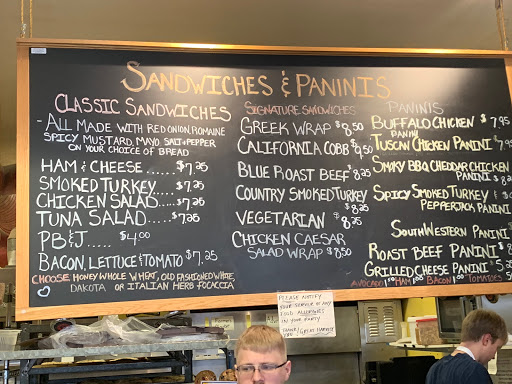 SANDWICHES & PANINIS
CLASSIC SANDWICHES
- ALL MADE WITH RED ONION, ROMAINE
SPICY MUSTARD, MAYO SALT & PEPPER
ON YOUR CHOICE OF BREAD
HAM & CHEESE ...... $7.25
SMOKED TURKEY..... $7.25
CHICKEN SALAD.... $7.25
TUNA SALAD..... $7.25
PB&J..... $4.00
BACON, LETTUCE & TOMATO $7.25
CHOOSE HONEY WHOLE WHEAT, OLD FASHIONED WHITE,
DAKOTA OR ITALIAN HERB FOCACCIA
SIGNATURE SANDWICHES
GREEK WRAP $8.50
CALIFORNIA COBB $9.50
BLUE ROAST BEEF $8.25
COUNTRY SMOKED TURKEY
$8.25
VEGETARIAN $8.25
CHICKEN CAESAR
SALAD WRAP $8.50
PANINIS
BUFFALO CHICKEN $7.95
PANINI
TUSCAN CHICKEN PANINI
SMOKY BBQ CHEDDAR CHICKEN
PANINI
SPICY SMOKED TURKEY &
PEPPERJACK PANINI
SOUTHWESTERN PANINI
ROAST BEEF PANINI
GRILLED CHEESE PANINI
AVOCADO HAM BACON TOMATOES
PLEASE NOTIFY
YOUR SERVER OF ANY
FOOD ALLERGIES
IN YOUR PARTY
THANK YOU
GREAT HARVEST